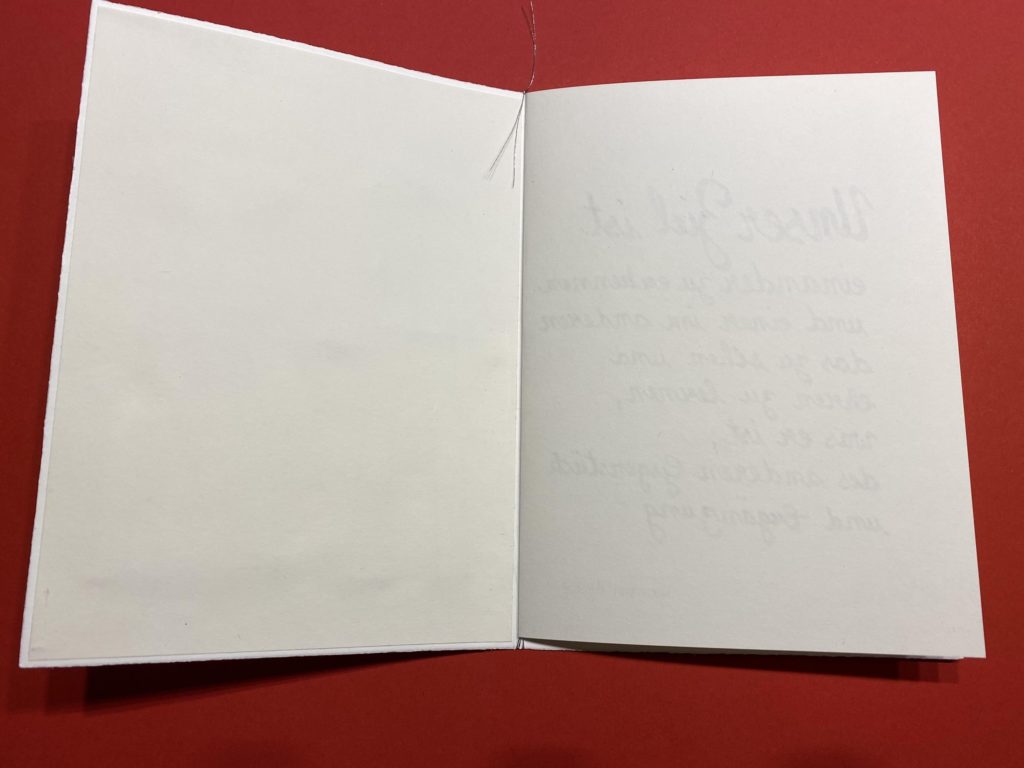 Unser Ziel ist
einander zu erkennen
und einer im anderen
das zu sehen und
ehren zu lernen,
was er ist,
des anderen Gegenstück
und Ergänzung